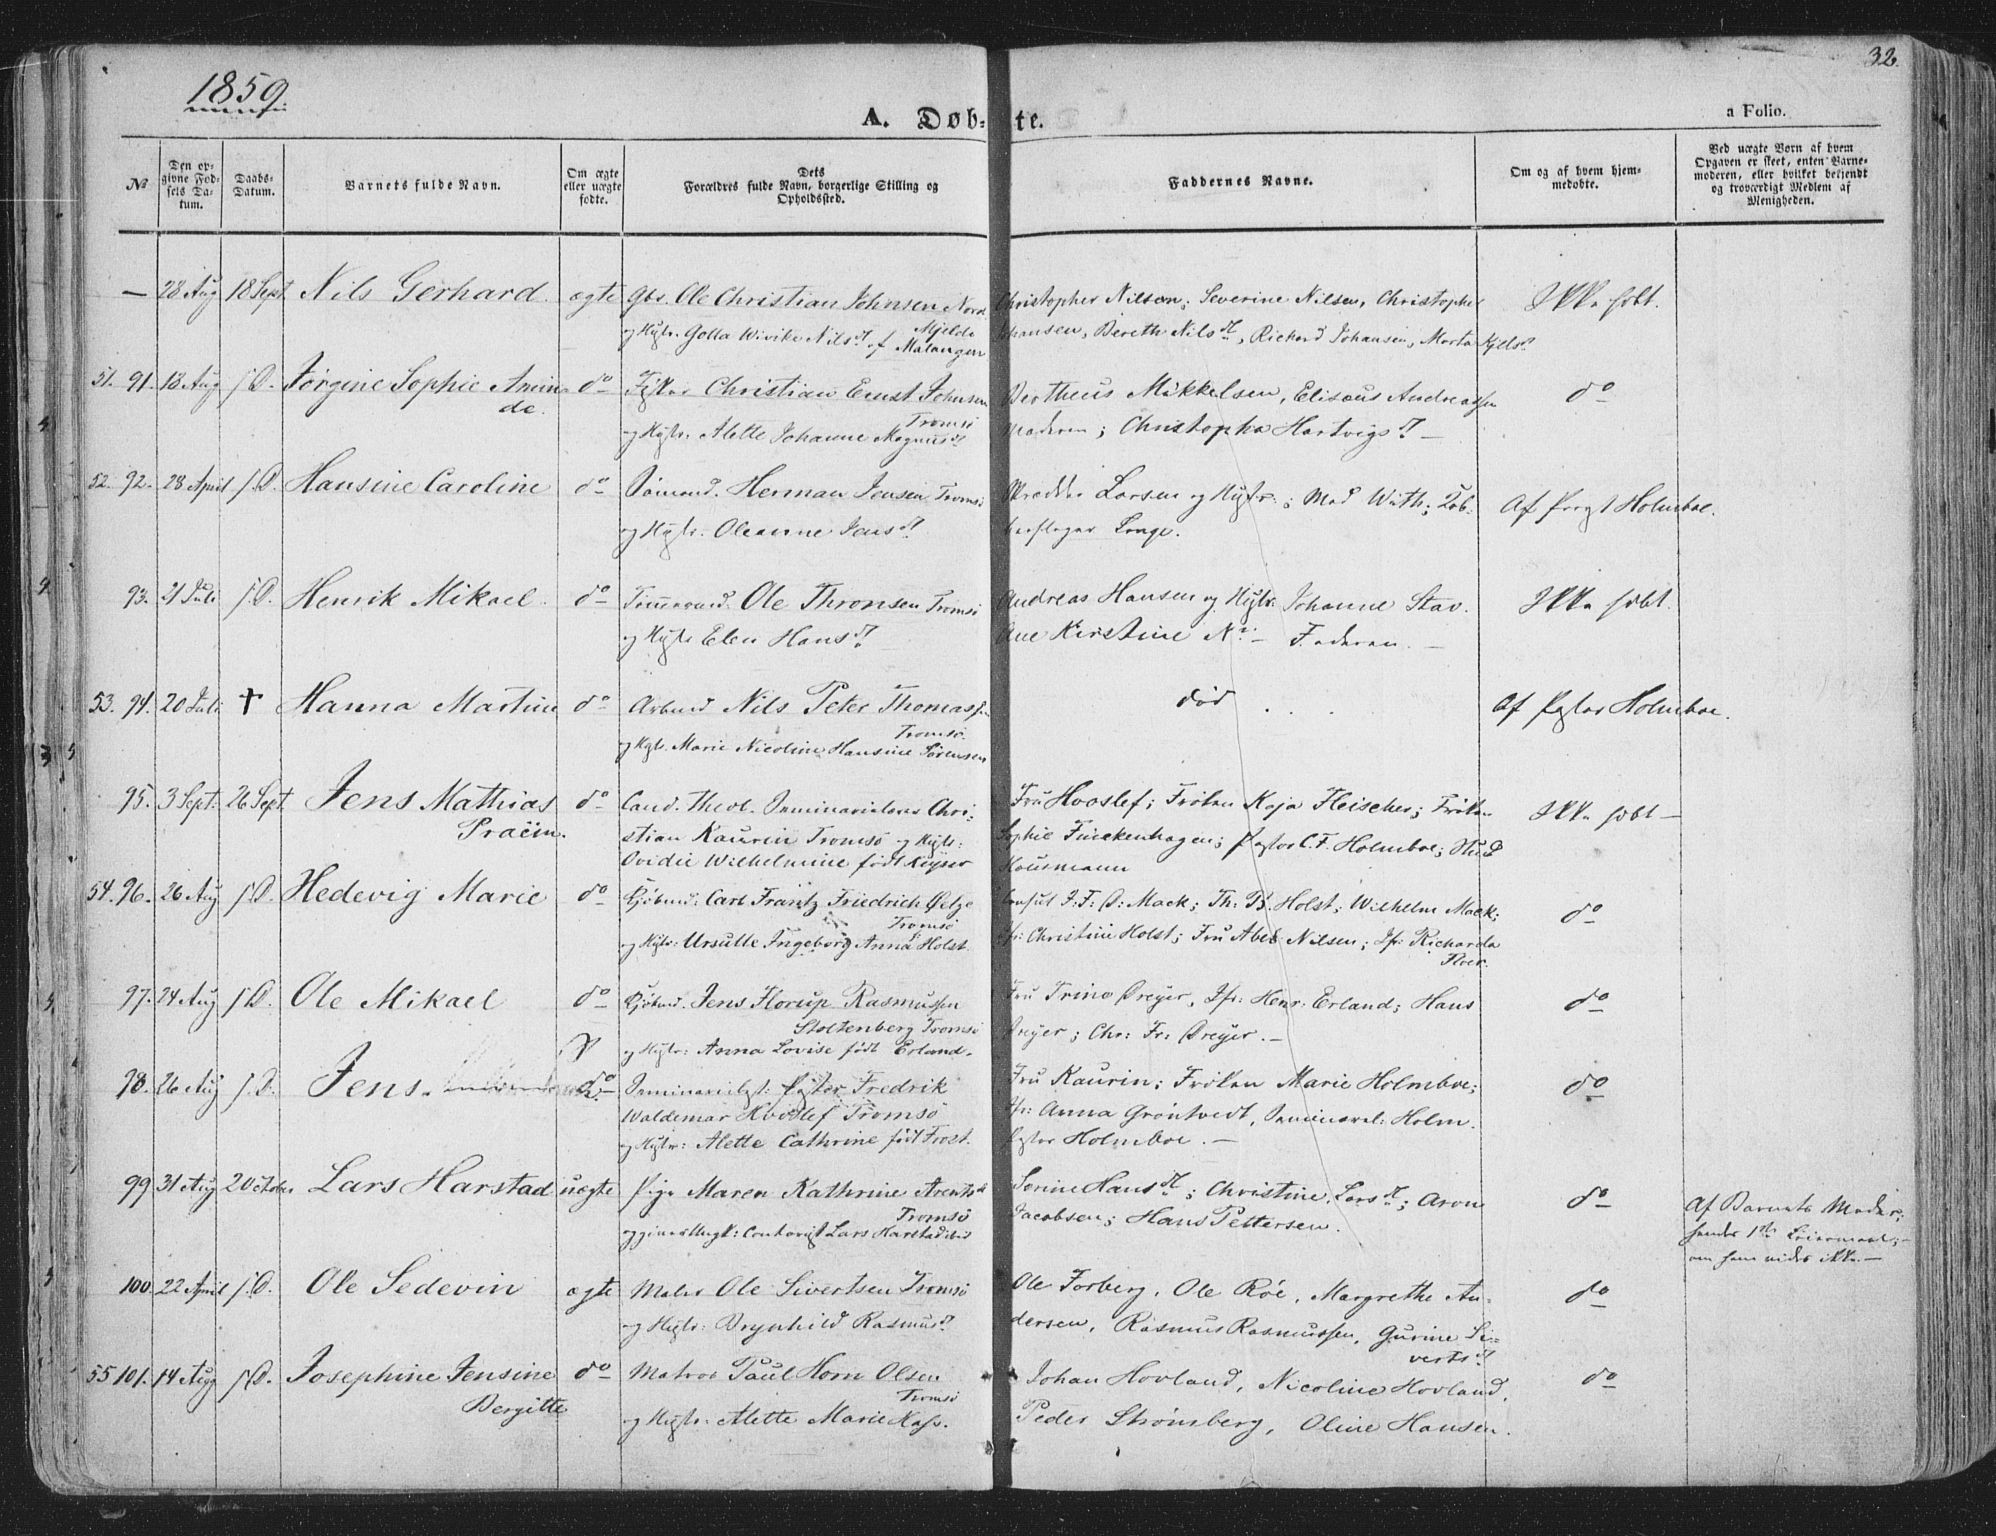 1859
32.
A. Døb-te.
a Folio.
№
Den op-
givne Fød-
sels Da-
tum.
Daabs-
Datum.
Barnets fulde Navn.
Om ægte
eller uægte
fødte.
Dets
Forældres fulde Navn, borgerlige Stilling og
Opholdssted.
Faddernes Navne.
Om og af hvem hjem-
medøbte.
Ved uægte Børn af hvem
Opgaven er skeet, enten Barne-
moderen, eller hvilket bekjendt
og troværdigt Medlem af
Menigheden.
— 28 Aug 18 Sept Nils Gerhard ægte Gbr. Ole Christian Johnsen Nord
Mjelde
og Hstr. Golla Wivike Nilsd. af Malangen
Christopher Nilsen; Severine Nilsen, Christopher
Johansen, Bereth Nilsd., Richard Johansen, Marta Kjelsd.
Ikke døbt.
51. 91. 18 Aug s.D. Jørgine Sophie Amin-
de.
do Christian Ernst Johnsen
Tromsø
og Hstr. Alette Johanne Magnusd.
Bertheus Mikkelsen, Elisæus Andreassen
Moderen; Christopha Hartvigsd. —
do
52. 92. 28 April s.D. Hansine Caroline do Sømand. Herman Jensen Tromsø
og Hstr. Oleanne Jensd.
Skrædder Larsen og Hstr.; Mad Wuth; Tob-
Lange.
Af Prost Holmboe.
93. 21 Juli s.D. Henrik Mikael do Tømmermd. Ole Thronsen Tromsø
og Hstr. Elen Hansd.
Andreas Hansen og Hstr. Johanne Stav.
Ane Kirstine N. — Faderen. —
Ikke døbt.
53. 94. 20 Juli † Hanna Martine do Arbmd Nils Peter Thomassen
Tromsø.
og Hstr. Marie Nicoline Hansine Sørensen
død
Af Pastor Holmboe.
95. 3 Sept. 26 Sept Jens Mathias
Praëm.
do Cand. Theol. Seminarielærer Chri-
stian Kaurin Tromsø og Hstr:
Ovidie Wilhelmine født Keyser
Fru Hvoslef; Frøken Kaja Fleischer; Frøken
Sophie Finckenhagen; Pastor C.F. Holmboe; Stud
Housmann
Ikke døbt —
54. 96. 26 Aug s.D. Hedevig Marie do Kjøbmd: Carl Frantz Friedrich Øelze
Tromsø
og Hstr: Ursulle Ingeborg Anna Holst.
Consul J. F. D: Mack; Th: B. Holst; Wilhelm Mack;
Jfr: Christine Holst; Fru Abel Nilsen; Jfr: Richarda
Floer.
do
97. 24 Aug s.D. Ole Mikael do Kjøbmd. Jens Florup Rasmussen
Stoltenberg Tromsø
og Hstr: Anna Lovise født Erland.
Fru Trine Dreyer, Jfr: Henr: Erland; Hans
Dreyer; Chr: Fr: Dreyer. —
do
98. 26 Aug s.D. Jens. do Seminariebst. Pastor Fredrik
Waldemar Hvoslef Tromsø
og Hstr: Alette Cathrine født Frost.
Fru Kaurin; Frøken Marie Holmboe;
Jfr: Anna Grøntvedt, Seminarel: Holm.
Pastor Holmboe. —
do
99 31 Aug 2 October Lars Harstad uægte Pige Maren Kathrine Arentsd
Tromsø
og Lars Harstad ibid
Sorine Hansd.; Christine Larsd.; Aron
Jacobsen; Hans Pettersen.
do
Af Barnets Moder;
hendes 1ste Leiermaal; —
om ham vides ikke —
100. 22 April s.D. Ole Sedevin ægte Maler Ole Sivertsen Tromsø
og Hstr: Brynhild Rasmusd.
Ole Forberg, Ole Röe, Margrethe An-
dersen, Rasmus Rasmussen, Gurine Si-
vertsd.
do
55 101. 14 Aug s.D. Josephine Jensine
Bergitte
do Matros Paul Horn Olsen
Tromsø
og Hstr: Alette Marie Kass.
Johan Hovland, Nicoline Hovland,
Peder Strømberg, Oline Hansen.
do